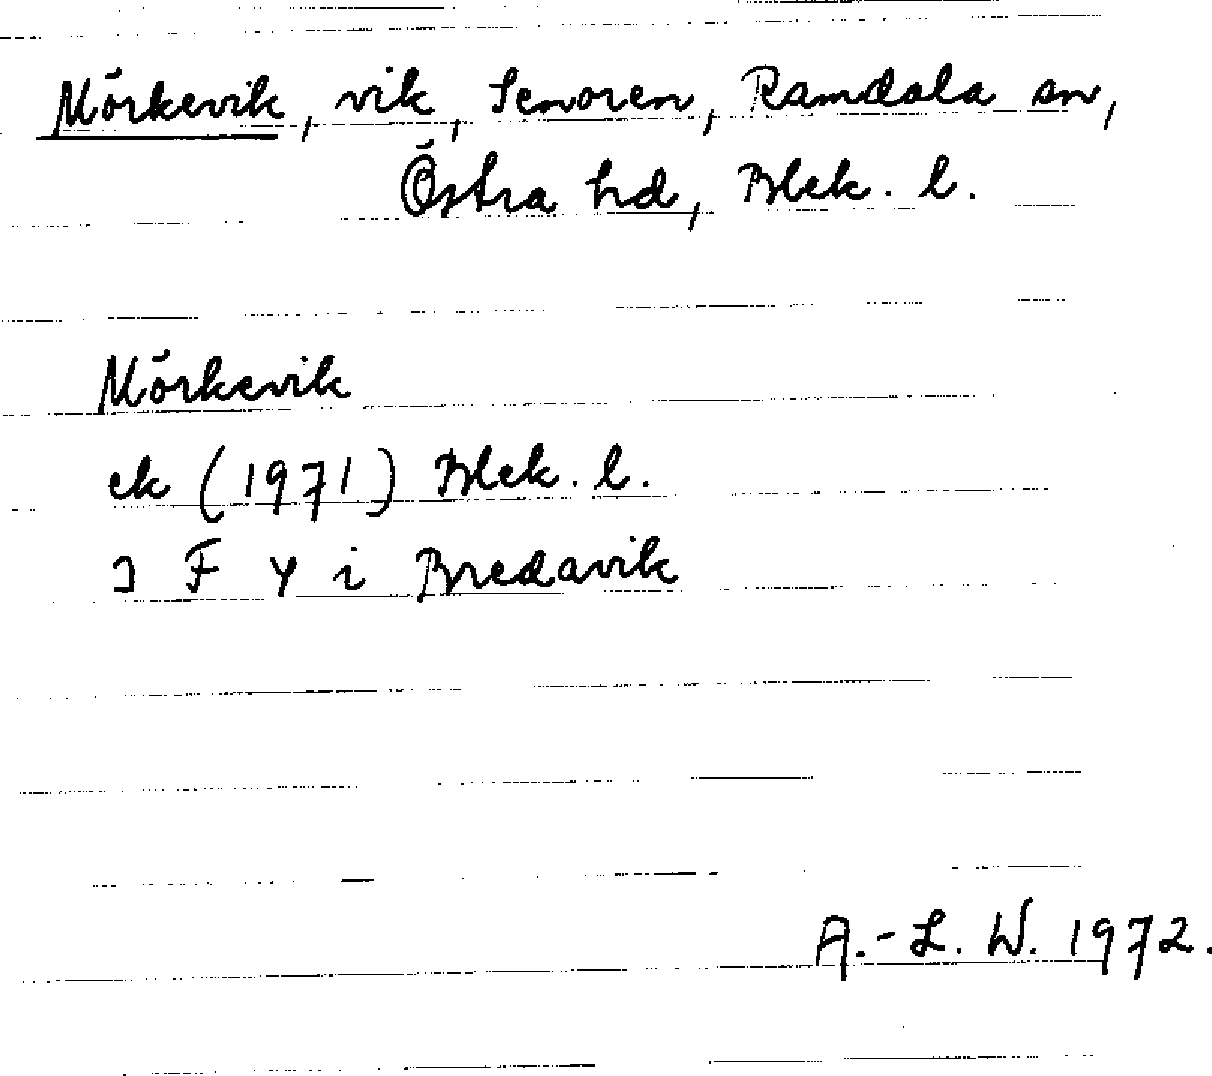 Mörkevik, vik, Senoren, Ramdala sn,
Östra hd, Blek. l.
Mörkevik
ek (1971) Blek. l.
J F Y i Bredavik
A.-L. W. 1972.